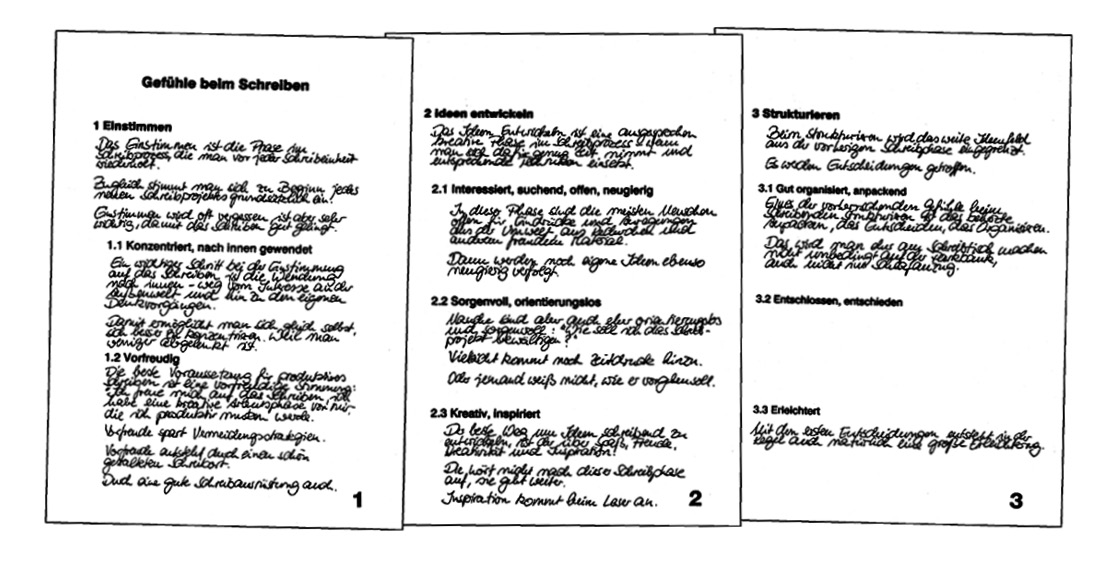 Gefühle beim Schreiben
1 Einstimmen
Das Einstimmen ist die Phase im
Schreibprozess, die man vor jeder Schreibeinheit
wiederholt.
Zugleich stimmt man sich zu Beginn jedes
neuen Schreibprojektes grundsätzlich ein!
Einstimmen wird oft vergessen, ist aber sehr
wichtig, damit das Schreiben gut gelingt.
1.1 Konzentriert, nach innen gewendet
Ein wichtiger Schritt bei der Einstimmung
auf das Schreiben ist die Wendung
nach innen - weg vom Interesse an der
Außenwelt und hin zu den eigenen
Denkvorgängen.
Damit ermöglicht man sich gleich selbst,
sich besser zu konzentrieren. Weil man
weniger abgelenkt ist.
1.2 Vorfreudig
Die beste Voraussetzung für produktives
Schreiben ist eine vorfreudige Stimmung:
Ich freue mich auf das Schreiben, ich
habe eine kreative Arbeitsphase vor mir,
die ich produktiv nutzen werde.
Vorfreude spart Vermeidungsstrategien.
Vorfreude entsteht durch einen schön
gestalteten Schreibort.
Durch eine gute Schreibausrüstung auch.
1
2 Ideen entwickeln
Das Ideen Entwickeln ist eine ausgesprochen
kreative Phase im Schreibprozess - wenn
man sich dafür genug Zeit nimmt und
entsprechende Techniken einsetzt.
2.1 Interessiert, suchend, offen, neugierig
In dieser Phase sind die meisten Menschen
offen für Eindrücke und Anregungen
aus der Umwelt, aus Recherchen und
anderem fremden Material.
Dann werden noch eigene Ideen ebenso
neugierig verfolgt.
2.2 Sorgenvoll, orientierungslos
Manche sind aber auch eher orientierungslos
und sorgenvoll: "Wie soll ich das Schreib-
projekt bewältigen?"
Vielleicht kommt noch Zeitdruck hinzu.
Oder jemand weiß nicht, wie er vorgehen soll.
2.3 Kreativ, inspiriert
Der beste Weg, um Ideen schreibend zu
entwickeln, ist der über Spaß, Freude,
Kreativität und Inspiration!
Die hört nicht nach dieser Schreibphase
auf, sie geht weiter.
Inspiration kommt beim Leser an.
2
3 Strukturieren
Beim Strukturieren wird das weite Ideenfeld
aus der vorherigen Schreibphase eingegrenzt.
Es werden Entscheidungen getroffen.
3.1 Gut organisiert, anpackend
Eines der vorherrschenden Gefühle beim
Schreibenden Strukturieren ist das beherzte
Anpacken, das Entscheiden, das Organisieren.
Das wird man eher am Schreibtisch machen
nicht unbedingt auf der Parkbank,
auch nicht im Schlafanzug.
3.2 Entschlossen, entschieden
3.3 Erleichtert
Mit den ersten Entscheidungen entsteht in der
Regel auch natürlich eine große Erleichterung.
3